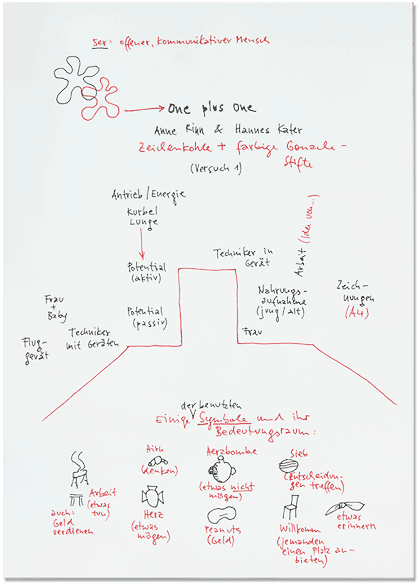 5er: offener, kommunikativer Mensch
One plus One
Anne Rinn & Hannes Kater
Zeichenkohle + farbige Gouache-
Stifte
(Versuch 1)
Antrieb/Energie
Kurbel
Lunge
Potential
(aktiv)
Potential
(passiv)
Techniker in
Gerät
Arbeit (Idee von...)
Nahrungs-
aufnahme
(jung/alt)
Frau
Zeich-
nungen
(A4)
Frau
+
Baby
Flug-
gerät
Techniker
mit Geräten
der benutzten
Einige Symbole und ihr
Bedeutungsraum:
Arbeit
(etwas
tun)
auch:
Geld
verdienen
Hirn
(denken)
Herz
(etwas
mögen)
Herzbombe
(etwas nicht
mögen)
Peanuts
(Geld)
Sieb
(Entscheidun-
gen treffen)
Willkommen
(jemanden
einen Platz an-
bieten)
etwas
erinnern